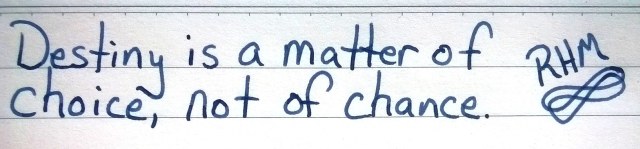 Destiny is a matter of
choice, not of chance.
RHM